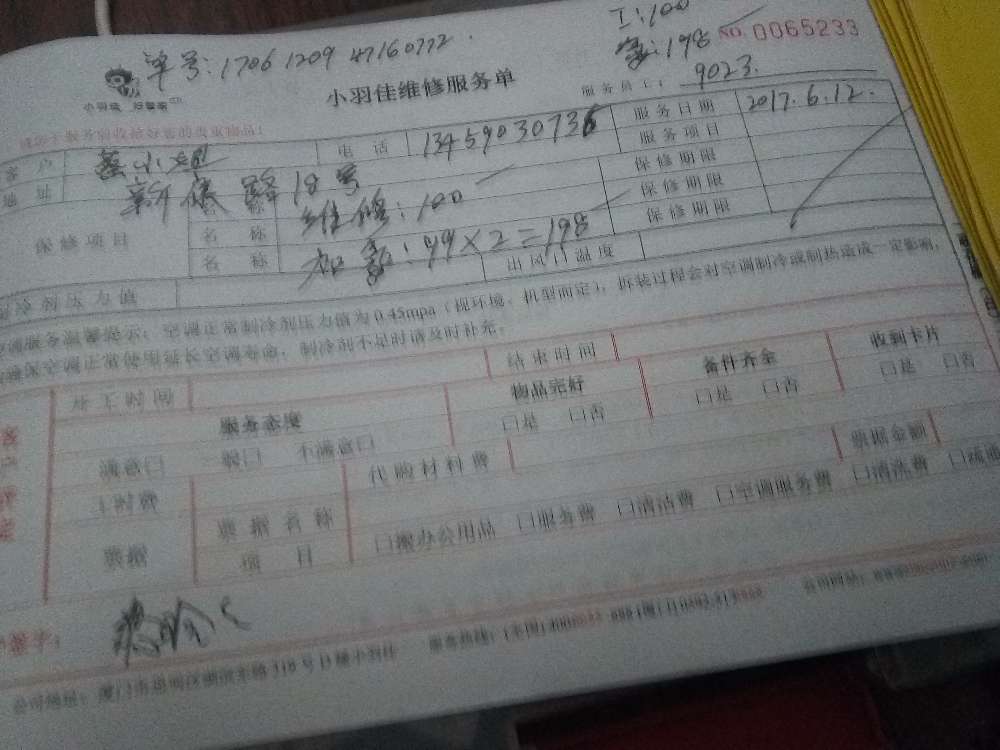 单号：1706 1209 47160772.
工：100
氟：198
NO. 0065233
小羽佳 好管家
小羽佳维修服务单
服务员工： 9023.
客户
电话 13459030736
服务日期 2017.6.12.
地址 18号
服务项目
保修项目
名称 维修：100
保修期限
名称 加氟：99×2=198
保修期限
名称
保修期限
出风口温度
制冷剂压力值
空调服务温馨提示：空调正常制冷剂压力值为0.45mpa（视环境、机型而定），拆装过程会对空调制冷或制热造成一定影响，
确保空调正常使用延长空调寿命，制冷剂不足时请及时补充。
开工时间
结束时间
服务态度
物品完好
备件齐全
收到卡片
满意口 一般口 不满意口
口是 口否
口是 口否
口是 口否
工时费
代购材料费
票据金额
票据
票据名称
项目
口搬办公用品 口服务费 口清洁费 口空调服务费 口清洗费
签字：